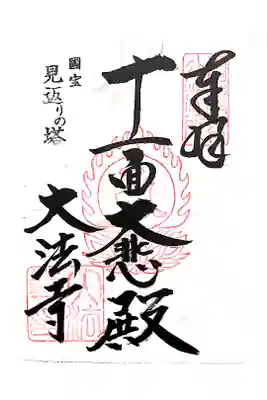 奉拝
十一面大悲殿
國宝
見返りの塔
大法寺